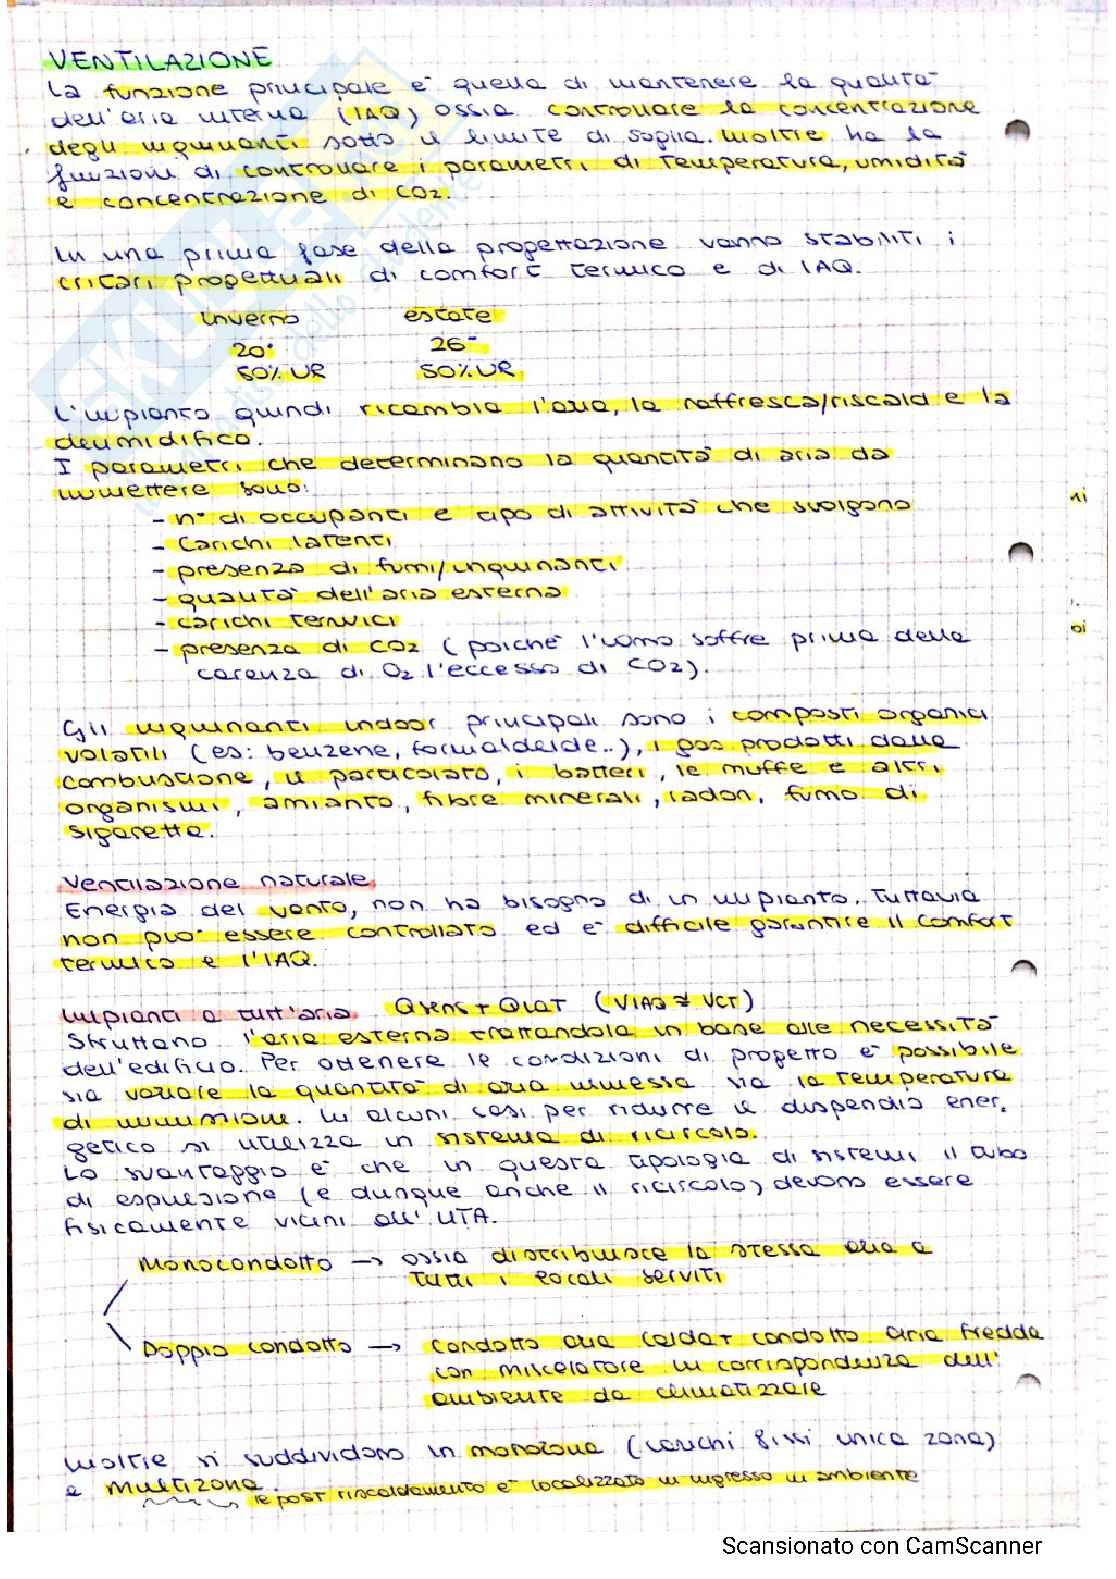 VENTILAZIONE
La funzione principale è quella di mantenere la qualità
dell'aria interna (IAQ) ossia controllare la concentrazione
degli inquinanti sotto il limite di soglia. Inoltre ha la
funzioni di controllare i parametri di temperatura, umidità
e concentrazione di CO2.
In una prima fase della progettazione vanno stabiliti i
criteri progettuali di comfort termico e di IAQ.
inverno estate
20° 26°
50% UR 50% UR
L'impianto quindi ricambia l'aria, la raffresca/riscald e la
deumidifico.
I parametri che determinano la quantità di aria da
immettere sono:
- n° di occupanti e tipo di attività che svolgono
- Carichi latenti
- presenza di fumi/inquinanti
- qualità dell'aria esterna
- carichi termici
- presenza di CO2 (poiché l'uomo soffre prima della
carenza di O2 l'eccesso di CO2).
ni
oi
Gli inquinanti indoor principali sono i composti organici
volatili (es: benzene, formaldeide..), i gas prodotti dalla
combustione, il particolato, i batteri, le muffe e altri
organismi, amianto, fibre minerali, radon, fumo di
sigaretta.
Ventilazione naturale
Energia del vento, non ha bisogno di un impianto. Tuttavia
non può essere controllato ed è difficile garantire il comfort
termico e l'IAQ.
Impianti a tutt'aria. Qsens + Qlat (VIAQ ≠ VCT)
Sfruttano l'aria esterna trattandola in base alle necessità
dell'edificio. Per ottenere le condizioni di progetto è possibile
sia variare la quantità di aria immessa sia la temperatura
di immissione. In alcuni casi per ridurre il dispendio ener.
getico si utilizza un sistema di ricircolo.
Lo svantaggio è che in questa tipologia di sistemi il tubo
di espulsione (e dunque anche il ricircolo) devono essere
fisicamente vicini all'UTA.
Monocondotto → ossia distribuisce la stessa aria a
tutti i locali serviti
Doppio condotto → condotto aria calda + condotto aria fredda
con miscelatore in corrispondenza dell'
ambiente da climatizzare
Inoltre si suddividono in monozona (carichi fissi unica zona)
e multizona.
le post riscaldamento è localizzato in ingresso in ambiente
Scansionato con CamScanner